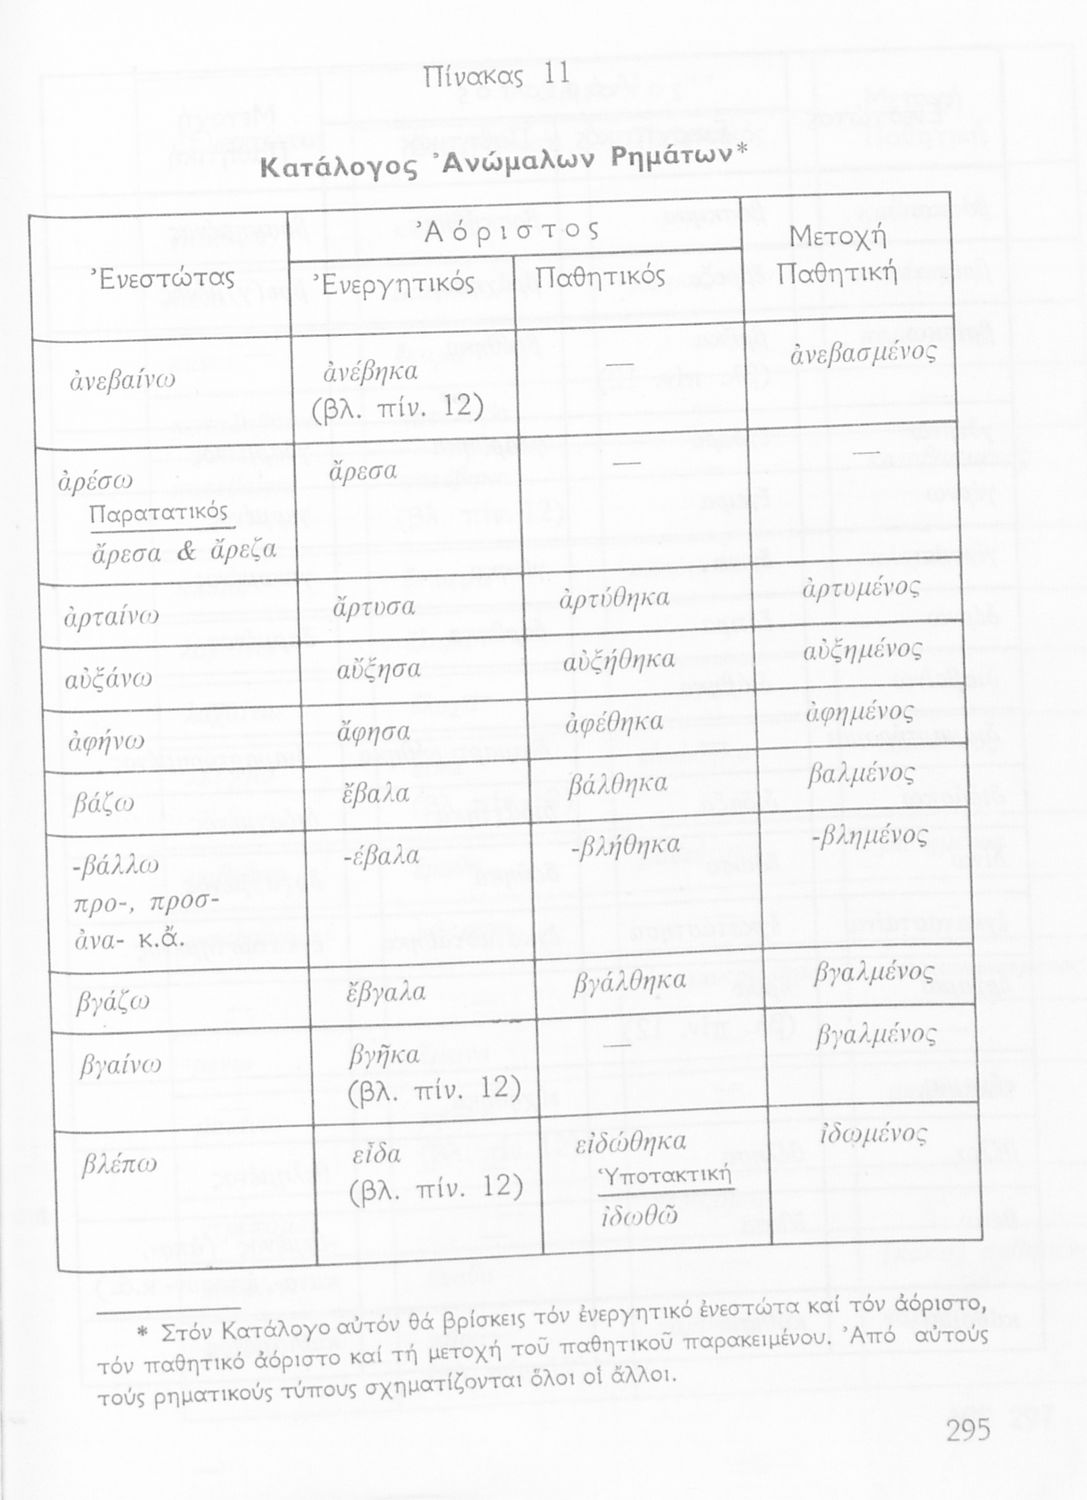 Πίνακας 11
Κατάλογος Ἀνώμαλων Ρημάτων*
Ἐνεστώτας
Ἀόριστος
Μετοχή
Παθητική
Ἐνεργητικός
Παθητικός
ἀνεβαίνω
ἀνέβηκα
(βλ. πίν. 12)
—
ἀνεβασμένος
ἀρέσω
Παρατατικός
ἄρεσα & ἄρεζα
ἄρεσα
—
—
ἀρταίνω
ἄρτυσα
ἀρτύθηκα
ἀρτυμένος
αὐξάνω
αὔξησα
αὐξήθηκα
αὐξημένος
ἀφήνω
ἄφησα
ἀφέθηκα
ἀφημένος
βάζω
ἔβαλα
βάλθηκα
βαλμένος
-βάλλω
προ-, προσ-
ἀνα- κ.ἄ.
-έβαλα
-βλήθηκα
-βλημένος
βγάζω
ἔβγαλα
βγάλθηκα
βγαλμένος
βγαίνω
βγῆκα
(βλ. πίν. 12)
—
βγαλμένος
βλέπω
εἶδα
(βλ. πίν. 12)
εἰδώθηκα
Ὑποτακτική
ἰδωθῶ
ἰδωμένος
* Στόν Κατάλογο αὐτόν θά βρίσκεις τόν ἐνεργητικό ἐνεστώτα καί τόν ἀόριστο,
τόν παθητικό ἀόριστο καί τή μετοχή τοῦ παθητικοῦ παρακειμένου. Ἀπό αὐτούς
τούς ρηματικούς τύπους σχηματίζονται ὅλοι οἱ ἄλλοι.
295